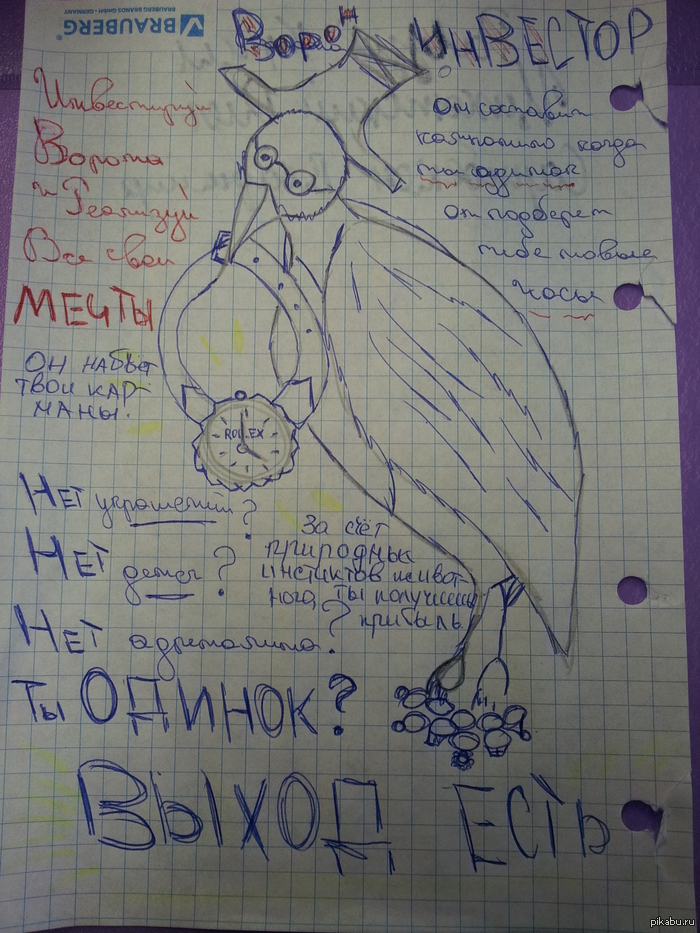 BRAUBERG
BRAUBERG BRANDS GmbH • GERMANY
Ворон ИНВЕСТОР
Инвестируй
Ворона
и Реализуй
Все свои
МЕЧТЫ
Он составит
компанию когда
ты одинок
он подберет
тебе новые
часы
ОН НАБЬЕТ
ТВОИ КАР-
МАНЫ.
ROLEX
НЕТ украшений?
НЕТ денег?
НЕТ адреналина?
За счёт
природных
инстиктов живот-
ного, ты получишь
прибыль
Ты ОДИНОК?
ВЫХОД ЕСТЬ
pikabu.ru